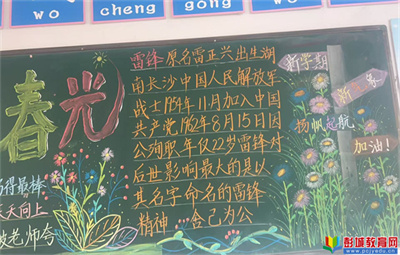 wo cheng gong wo
春光
雷锋 原名雷正兴出生湖
南长沙中国人民解放军
战士1954年11月加入中国
共产党1962年8月15日因
公殉职.年仅22岁雷锋对
后世影响最大的是以
其名字命名的雷锋
精神 舍己为公
得最棒
天天向上
老师夸
新学期
扬帆起航
加油!
彭城教育网
www.pcjyedu.cn